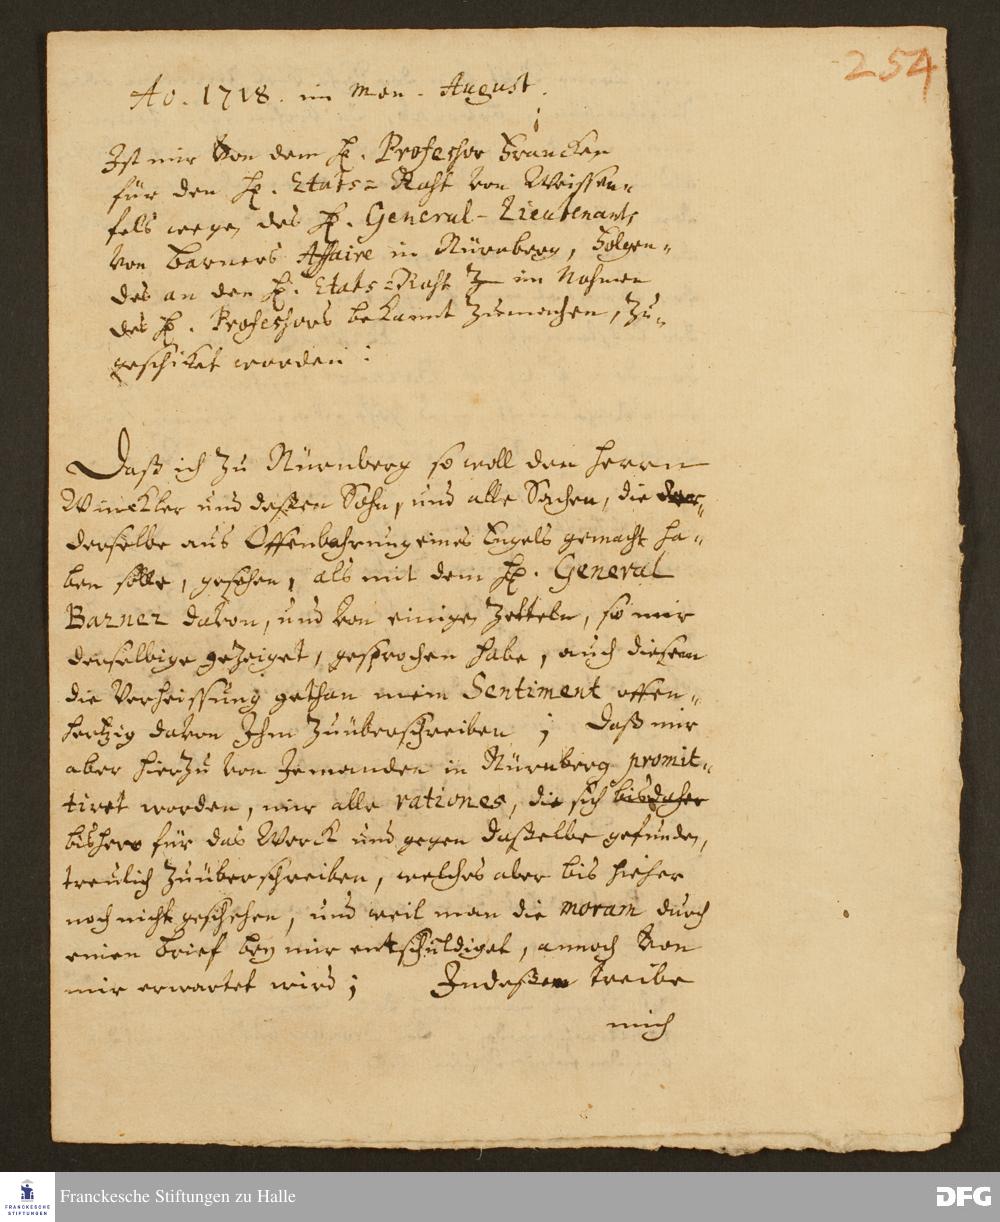 254
Ao. 1718. im Mon. August.
Ist mir von dem H. Professor Francken
für den H. Etats=Raht von Weissen„
fels wegen des H. General-Lieutenants
von Barners Affaire in Nürnberg, Folgen„
des an den H. Etats=Raht im Nahmen
des H. Professors bekannt zumachen, zu„
geschicket worden:
Daß ich zu Nürnberg so woll den Herrn
Winckler und deßen Sohn, und alle Sachen, die
derselbe aus Offenbahrung eines Engels gemacht ha„
ben solle, gesehen, als mit dem H. General
Barner davon, und von einigen Zetteln, so mir
derselbige gezeiget, gesprochen habe, auch diesem
die Verheissung gethan mein Sentiment offen„
hertzig davon Ihm zuüberschreiben; Daß mir
aber hierzu von Jemanden in Nürnberg promit„
tiret worden, mir alle rationes, die sich bisdaher
bishero für das Werck und gegen daßelbe gefunden,
treulich zuüberschreiben, welches aber bis hieher
noch nicht geschehen, und weil man die moram durch
einen Brief bey mir entschuldiget, annoch von
mir erwartet wird; Indeßen treibe
mich
FRANCKESCHE
STIFTUNGEN
Franckesche Stiftungen zu Halle
DFG